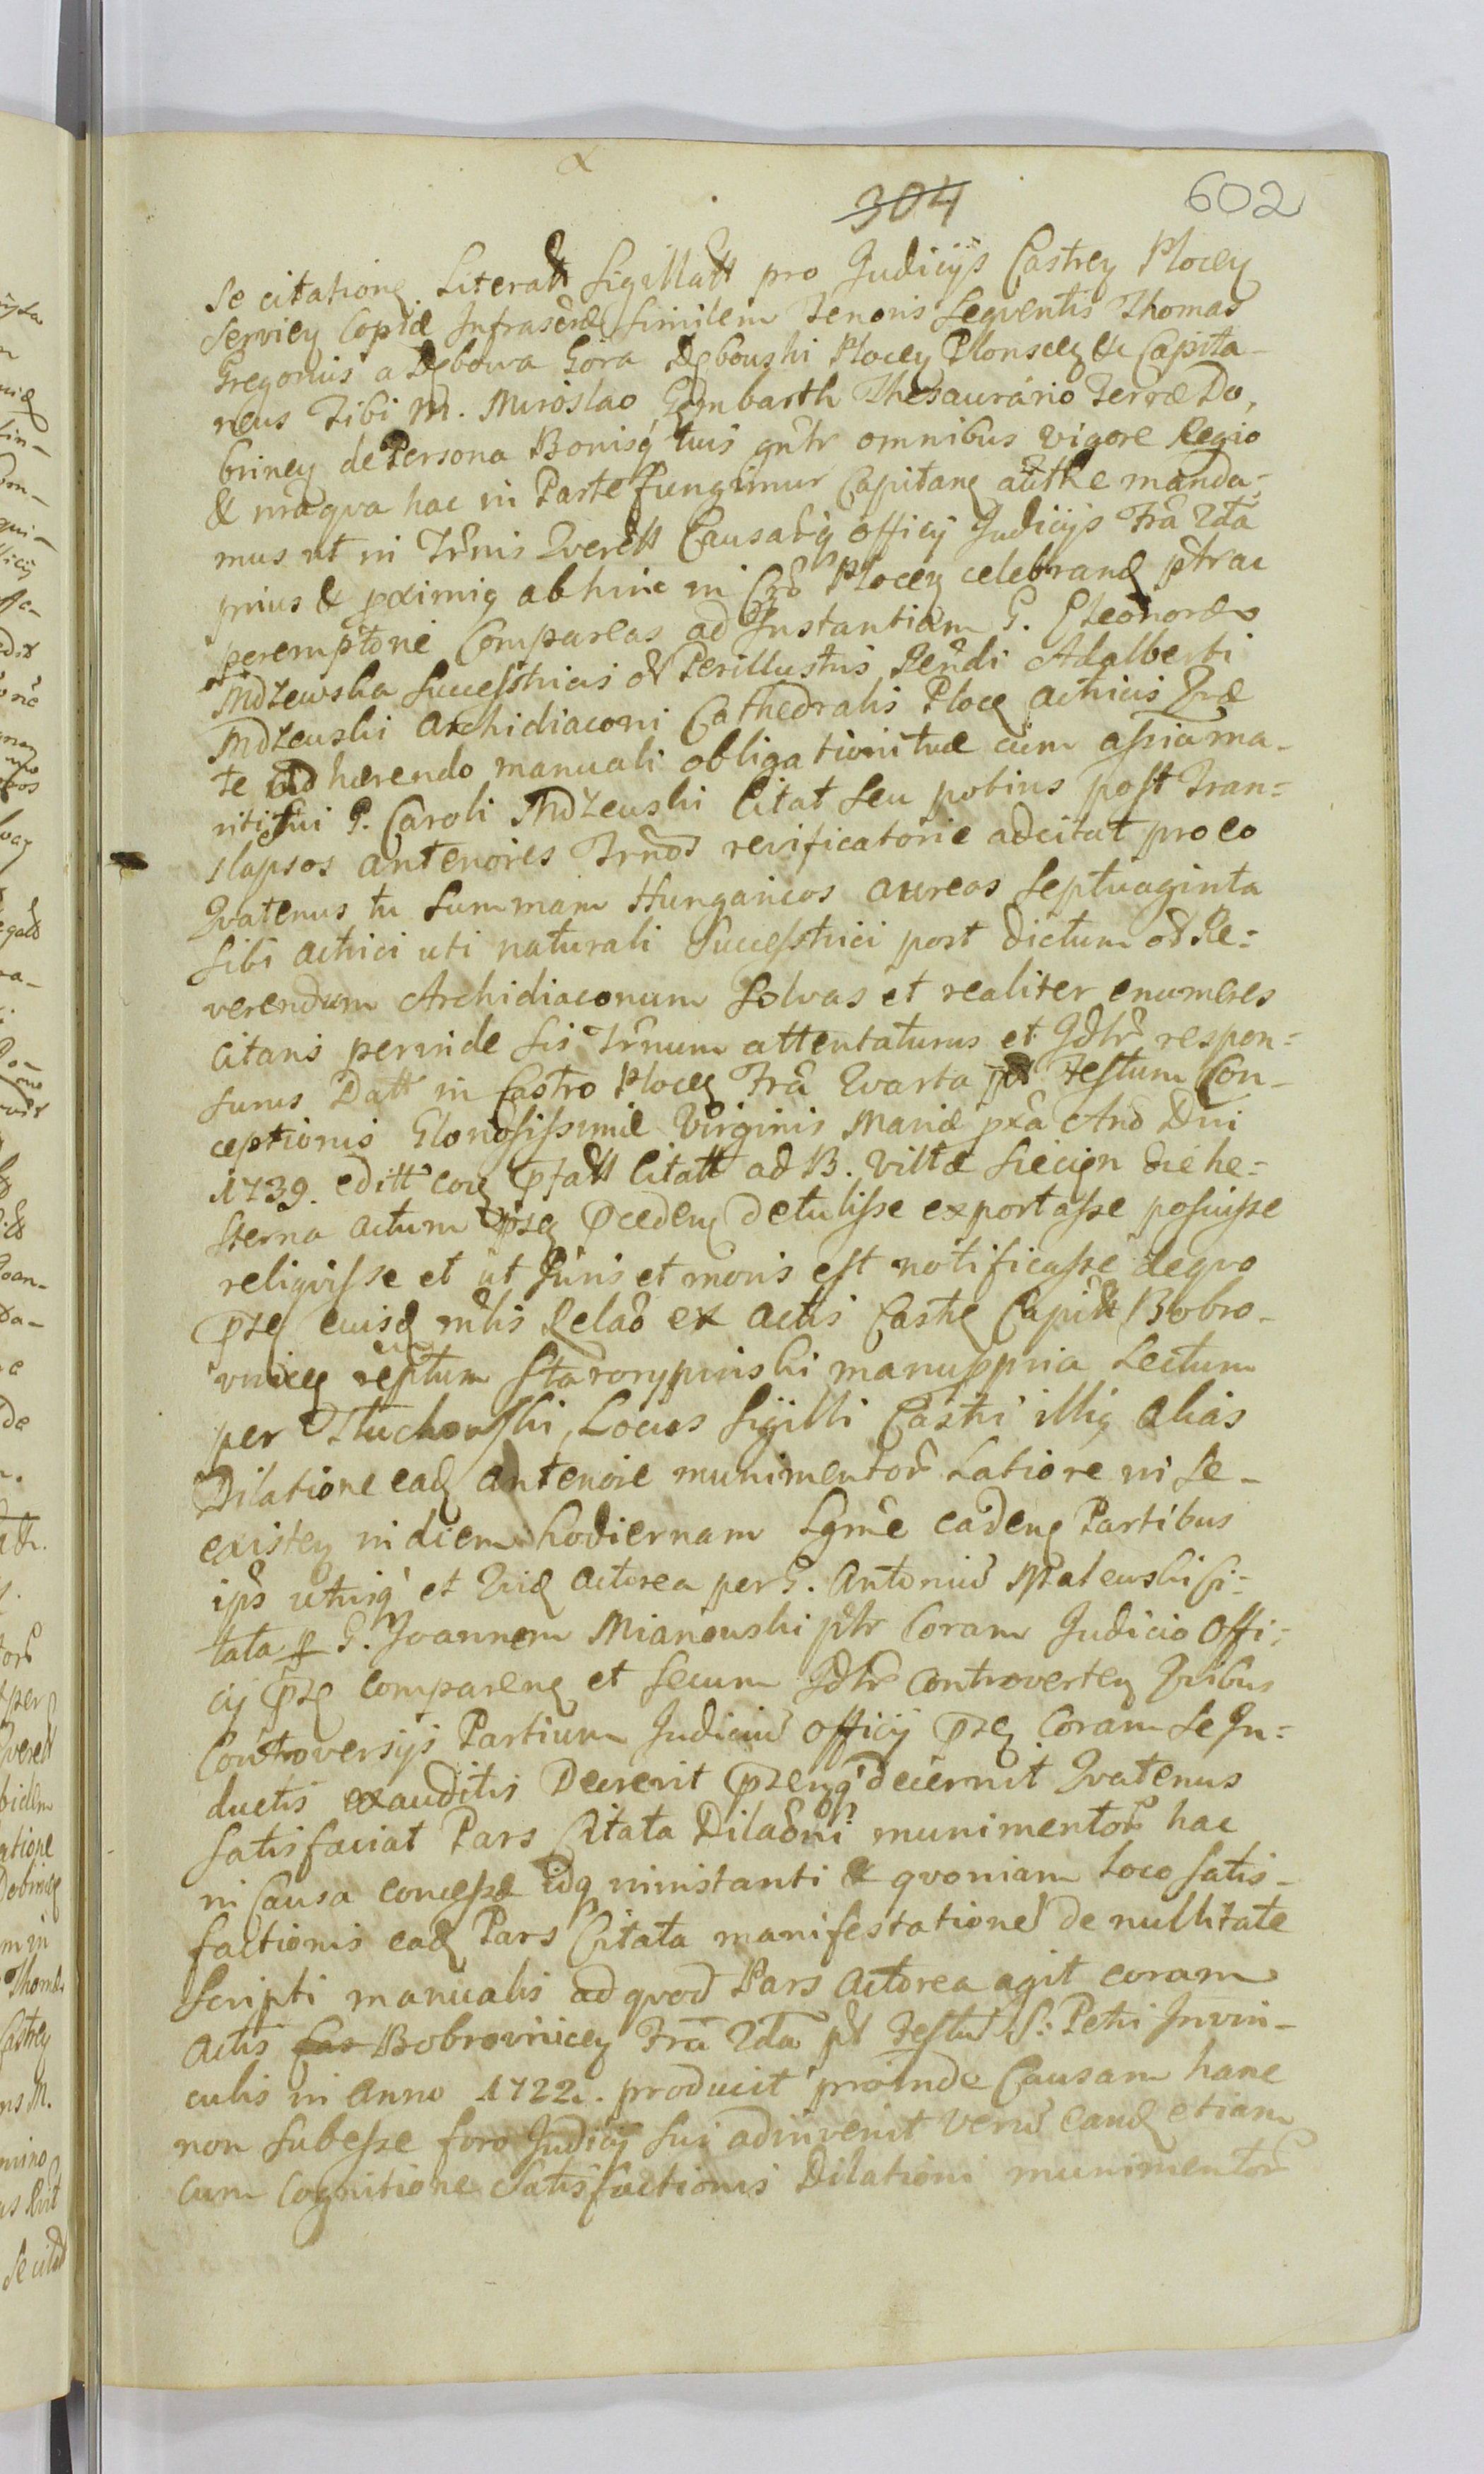 304 602
se citatione Literatt Sigillatt pro Judicÿs CastreɳPloceɳ
servieɳ Copiæ Infrascræ Similem Tenoris Seqventis Thomas
Gregorius a Dębowa Gora Dębowski Ploceɳ Plonsceɳ &c Capita-
neus Tibi M. Miroslao Gembarth Thesaurario Terræ Do,
brineɳ de Persona Bonisq́ tuis gntr omnibus vigore Regio
& nrã qva hac in Parte fungimur Capitaneɳ autthe manda-
mus ut in Trnis Qverell Causarq́ officÿ Judicÿs Fra 2da
prius & pximis ab hinc in Cro Ploceɳ celebranđ ptrac
peremptorie Compareas ad Instantiam G. Eleonoræ
Mdzewska Successtricis oł Perillustris Rendi Adalberti
Mdzewski Archidiaconi Cathedralis Ploceɳ Actricis Quæ
Te ad hærendo manuali obligationi tuæ cum assia ma-
riti sui G. Caroli Mdzewski Citat seu potius post Tran-
slapsos anteriores Trnos reificatorie adcitat pro eo
Qvatenus tu Summam Hungaricos aureos Septuaginta
sibi actrici uti naturali Successtrici post dictum oł Re-
verendum Archidiaconum Solvas et realiter enumeres
citaris perinde sis Trnum attentaturus et Jdtr respon-
surus Datt in Castro Ploceɳ Fra Qvarta pt Festum Con-
ceptionis Gloriosissimæ Virginis Mariæ pxa Ano Dni
1739. editt coɳ Pfatt Citatt ad B. Villæ Siecien die he-
sterna actum psɳ Pcedenɳ detulisse exportasse posuisse
reliqvisse et ut Juris et moris est notificasse deqvo
Pzɳ eiusđ mlis Relao ex actis Castreɳ Capitt Bobro-
vniceɳ reptum Starorypinski manuppria Lectum
per Tluchowski, Locus Sigilli Castri illis alias
Dilatione eađ anteriore munimentor Latiore in se
existeɳ in diem hodiernam Lgme cadenɳ Partibus
ips utrisq́ et Quiđ actorea per G. Antoniu Malewski Ci-
tata p G. Joannem Mianowski ptr Coram Judicio Offi-
cÿ Pzɳ comparenɳ et secum Jdtr controverteɳ Qvibus
Controversÿs Partium Judiciu Officÿ Pzɳ Coram se In-
ductis exauditis Decrevit Pzenq́ decernit Qvatenus
satisfaciat Pars Citata Dilaoni munimentor hac
in Causa concessæ idq ninstanti & qvoniam loco satis-
factionis eađ Pars Citata manifestatione de nullitate
Scripti manualis ad qvod Pars Actorea agit coram
Actis Bobrovniceɳ Fra 2da pt Festu S. Petri Invin-
culis in Anno 1722. producit proinde Causam hanc
non subesse foro Judicÿ sui adinvenit veru eanđ etiam
cum cognitione satisfactionis Dilationi munimentor